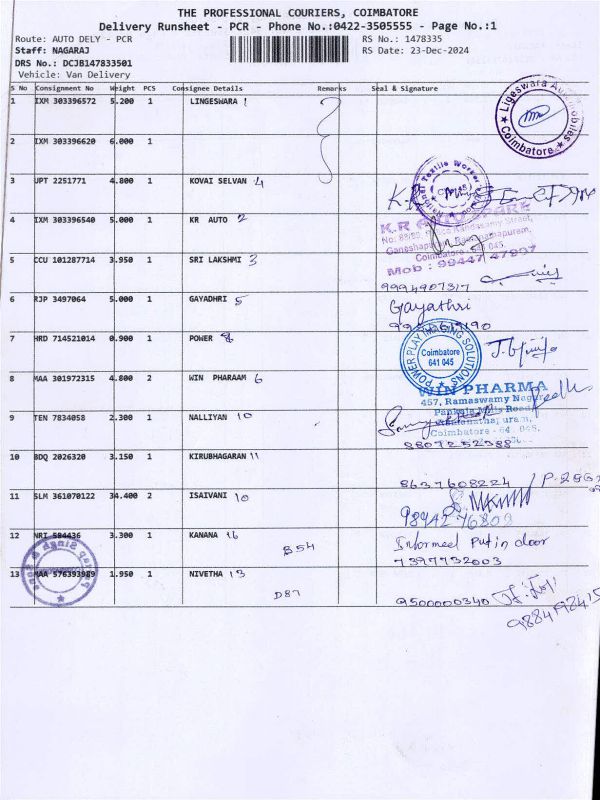 THE PROFESSIONAL COURIERS, COIMBATORE
Delivery Runsheet - PCR - Phone No.:0422-3505555 - Page No.:1
Route: AUTO DELY - PCR RS No.: 1478335
Staff: NAGARAJ RS Date: 23-Dec-2024
DRS No.: DCJB147833501
Vehicle: Van Delivery
S No Consignment No Weight PCS Consignee Details Remarks Seal & Signature
1 IXM 303396572 5.200 1 LINGESWARA 1
Ligeswara Automobiles
Coimbatore
2 IXM 303396620 6.000 1
3 UPT 2251771 4.800 1 KOVAI SELVAN 4
4 IXM 303396540 5.000 1 KR AUTO 2
K.R AUTO SPARE
Ganeshapuram, Ramanathapuram,
Coimbatore - 641 045.
Mob : 99447 47997
5 CCU 101287714 3.950 1 SRI LAKSHMI 3
9994907317
6 RJP 3497064 5.000 1 GAYADHRI 5
Gayathri
7 HRD 714521014 0.900 1 POWER 8
POWERPLAY IMAGING SOLUTIONS
Coimbatore
641 045
8 MAA 301972315 4.800 2 WIN PHARAAM 6
WIN PHARMA
457, Ramaswamy Nagar
Pankaja Mills Road,
Ramanathapuram,
Coimbatore - 641 045.
9 TEN 7834058 2.300 1 NALLIYAN 10
8807252388
10 BDQ 2026320 3.150 1 KIRUBHAGARAN 11
8637608224
11 SLM 361070122 34.400 2 ISAIVANI 10
12 NRI 584436 3.300 1 KANANA 16
B54
Informed Put in door
7397732003
13 MAA 576393989 1.950 1 NIVETHA 13
D87
9500000340